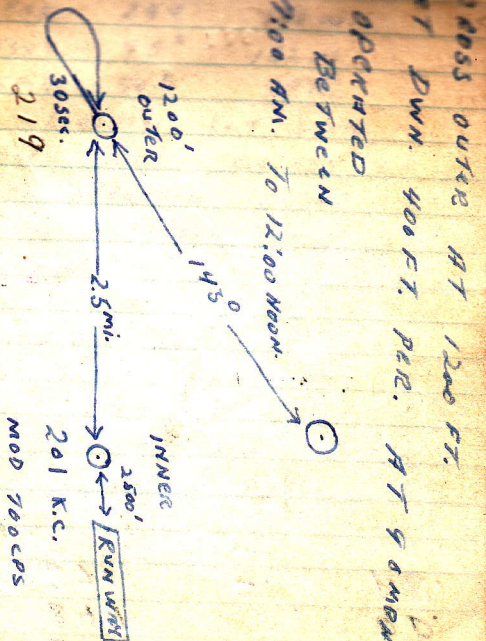 ROSS OUTER AT 1200 FT.
DWN. 400 FT. PER. AT 90 MPH
OPERATED
BETWEEN
:00 AM. TO 12:00 NOON.
1200'
OUTER
30 SEC.
219
2.5 mi.
INNER
2500'
RUNWAY
201 K.C.
MOD 700CPS